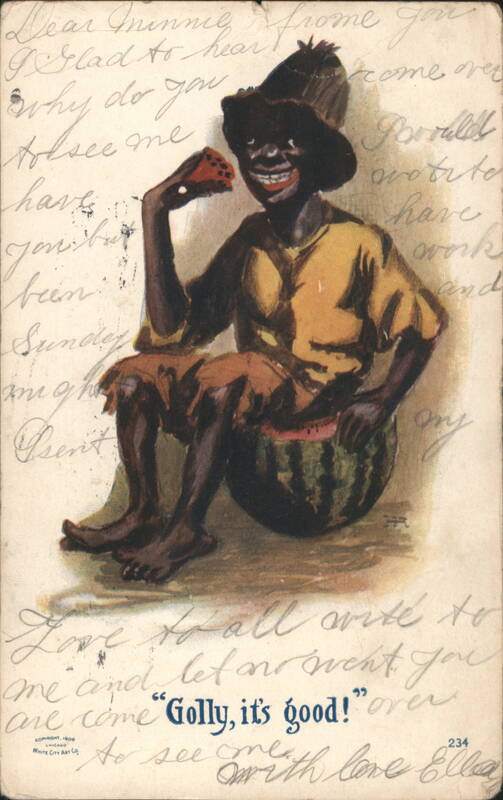 Dear Minnie frome you
I Glad to hear
why do you come over
to see me I would
have wote to
you but have
been work
Sunday and
might
I sent my
Love to all write to
me and let no went you
are come over
"Golly, it's good!"
COPYRIGHT, 1906
CHICAGO
WHITE CITY ART CO.
234
to see me.
with love Ella